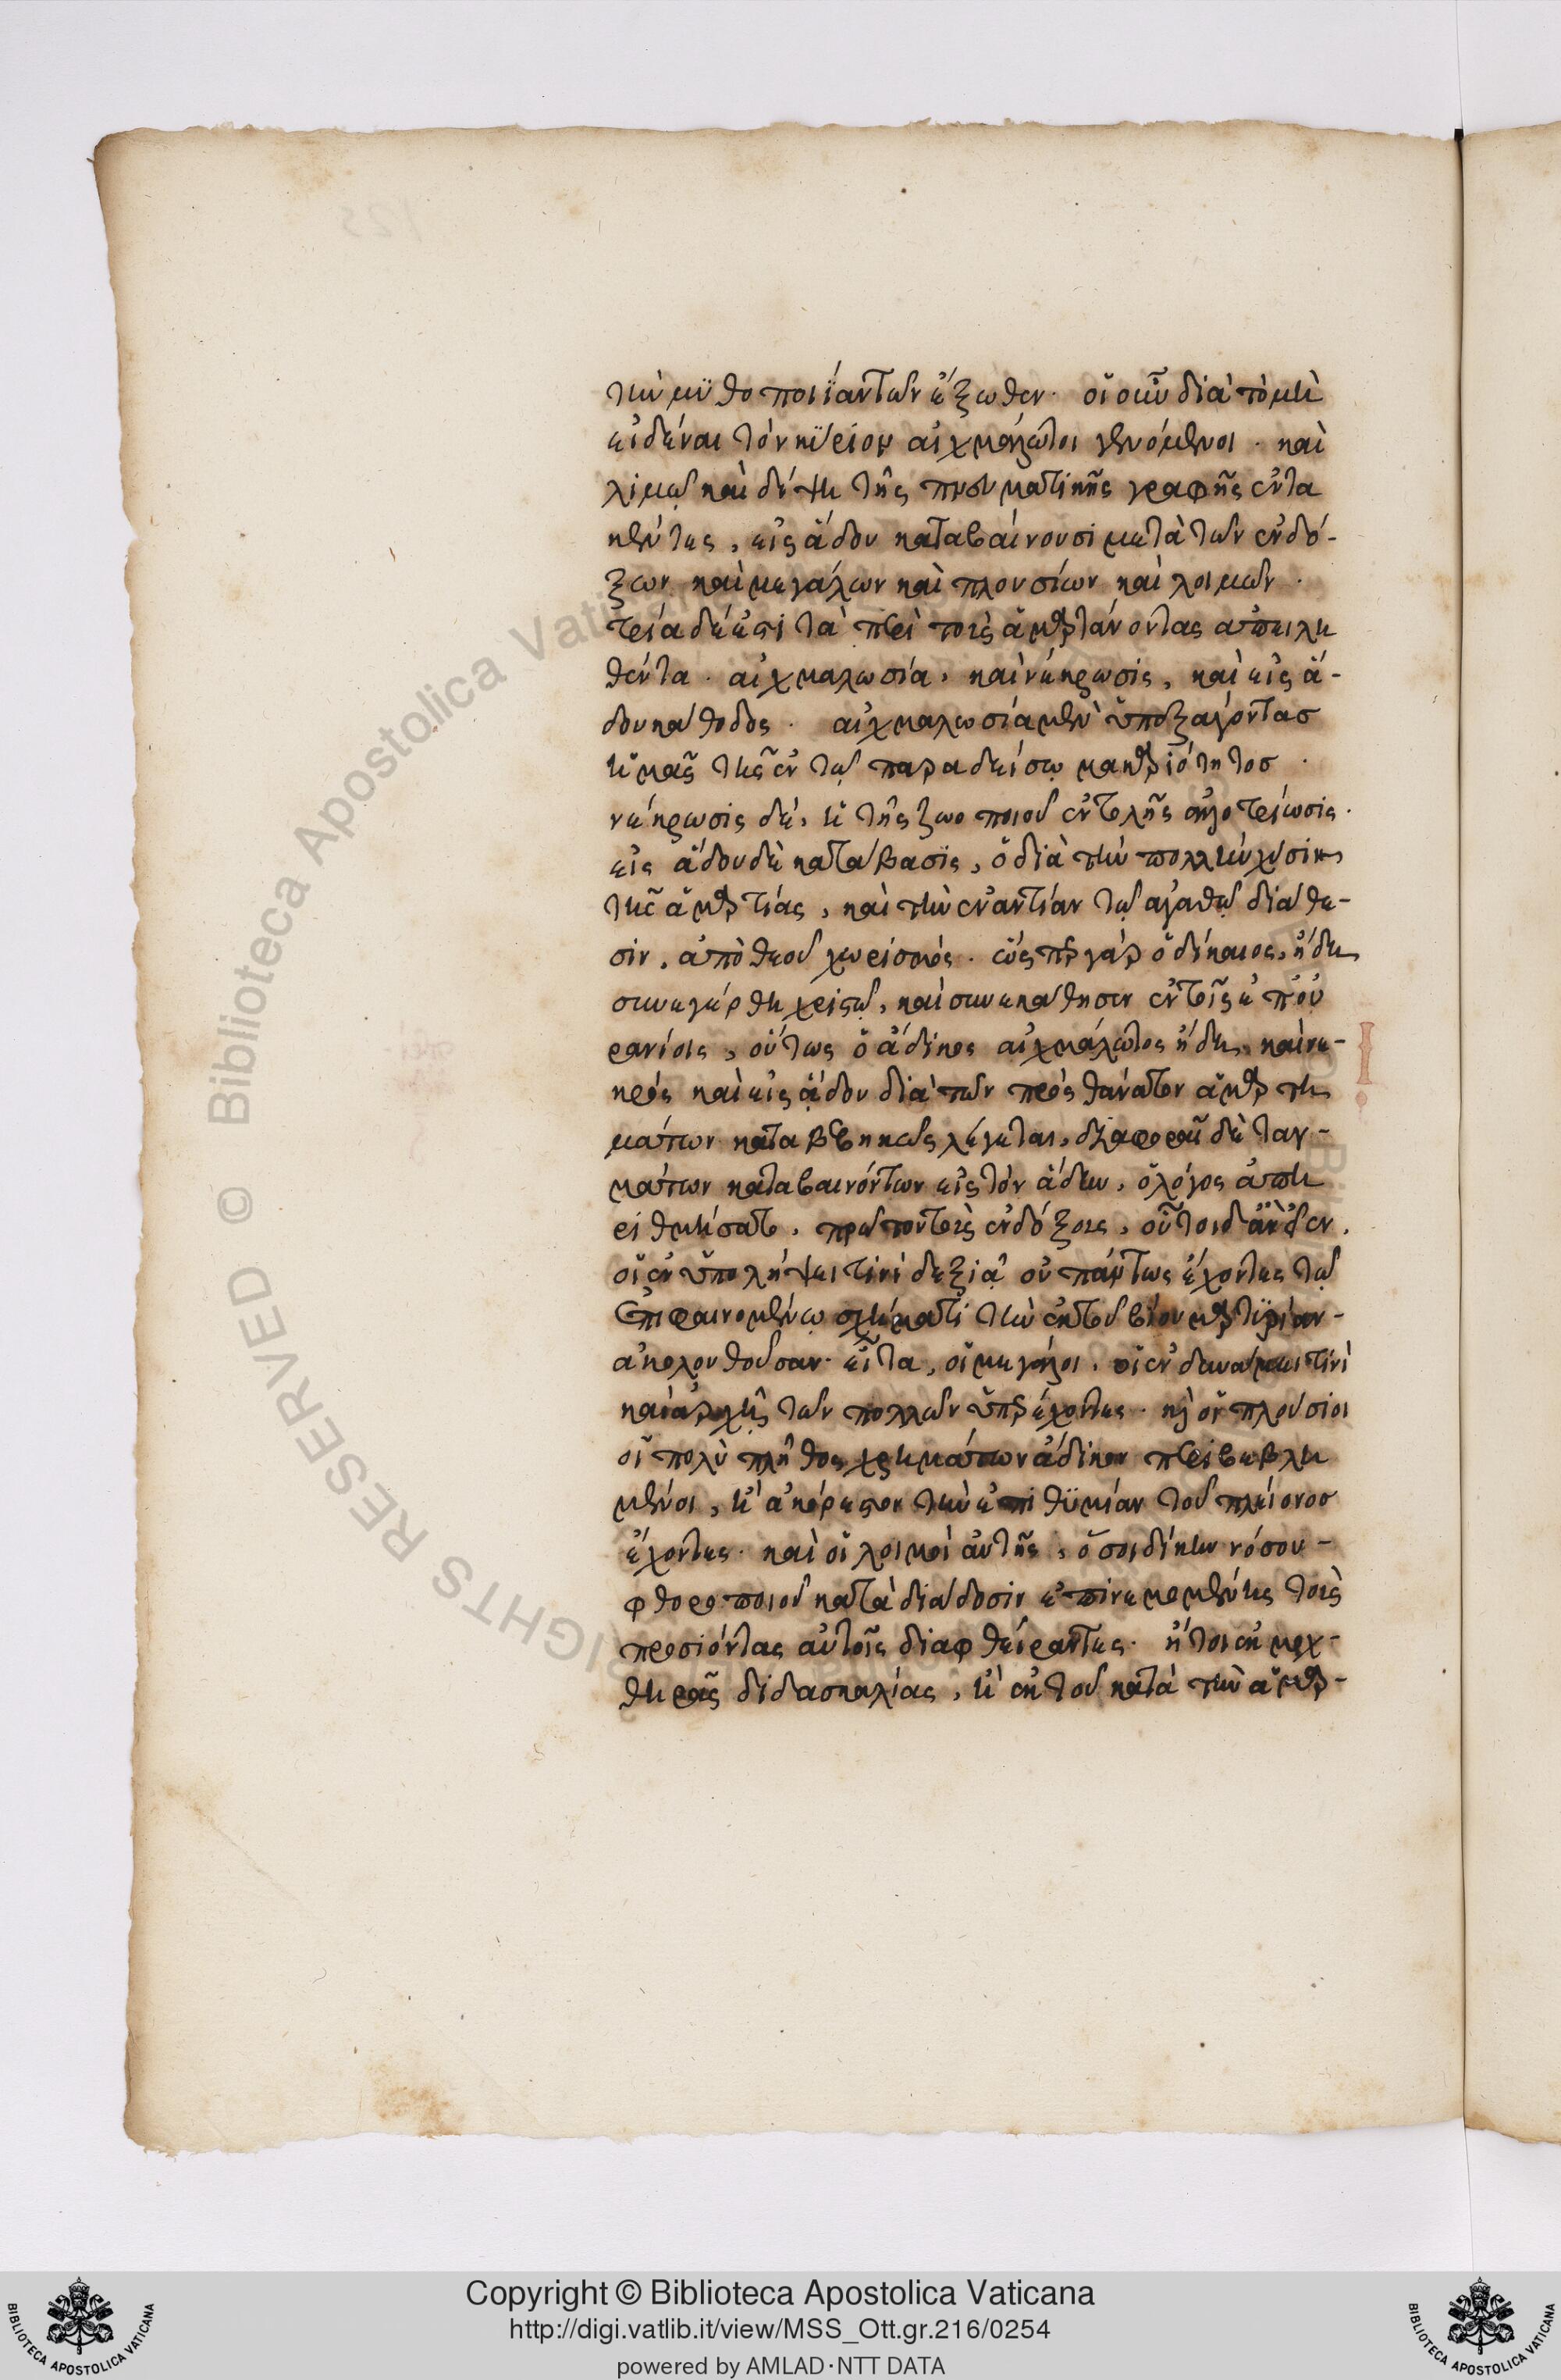 τὴν μϋθοποιΐαν τῶν ἔξωθεν. οἱ οὖν διὰ τὸ μὴ
εἰδέναι τὸν κύριον αἰχμάλωτοι γενόμενοι. καὶ
λιμῶ καὶ δίψη τῆς πνευματικῆς γραφῆς ἐντα
κέντες, εἰς ἅδου καταβαίνουσι μετὰ τῶν ἐνδό-
ξων καὶ μεγάλων καὶ πλουσίων καὶ λοιμῶν.
τρία δέ ἐστι τὰ περὶ τοὺς ἁμαρτάνοντας ἀπειλη
θέντα. αἰχμαλωσία, καὶ νέκρωσις, καὶ εἰς ἅ-
δου κάθοδος. αἰχμαλωσία μὲν ὑπεξάγοντας
ἡμᾶς τῆς ἐν τῶ παραδείσω μακαριότητος.
νέκρωσις δέ, ἡ τῆς ζωοποιοῦ ἐντολῆς ἀλλοτρίωσις.
εἰς ἅδου δὲ κατάβασις, ὁ διὰ τὴν πολλὴν χύσιν
τῆς ἁμαρτίας, καὶ τὴν ἐναντίαν τῶ ἀγαθῶ διάθε-
σιν, ἀπὸ θεοῦ χωρισμός. ὥσπερ γὰρ ὁ δίκαιος, ἤδη
συνεγέρθη χριστῶ, καὶ συνεκάθησεν ἐν τοῖς ἐπου
ρανίοις, οὕτως ὁ ἄδικος αἰχμάλωτος ἤδη, καὶ νε-
κρὸς καὶ εἰς ἅδου διὰ τῶν πρὸς θάνατον ἁμαρτη
μάτων καταβεβηκὼς λέγεται, διαφορὰν δὲ ταγ-
μάτων καταβαινόντων εἰς τὸν ἅδην, ὁ λόγος ἀπη
ριθμήσατο, πρῶτον τοὺς ἐνδόξους, οὗτοι δ' ἂν εἶεν,
οἱ ἐν ὑπολήψει τινὶ δεξιᾶ οὐ πάντως ἔχοντες τῶ
ἐπιφαινομένω σχήματι τὴν ἐκ τοῦ βίου μαρτυρίαν
ἀκολουθοῦσαν. εἶτα, οἱ μεγάλοι, οἱ ἐν δυνάμει τινὶ
καὶ ἀρχῆ τῶν πολλῶν ὑπερέχοντες. καὶ οἱ πλούσιοι
οἱ πολὺ πλῆθος χρημάτων ἄδικον περιβεβλη
μένοι, ἢ ἀκόρεστον τὴν ἐπιθϋμίαν τοῦ πλείονος
ἔχοντες. καὶ οἱ λοιμοὶ αὐτῆς, ὅσοι δίκην νόσου
φθοροποιοῦ κατὰ διάδοσιν ἐπινεμομένης τοὺς
προσιόντας αὐτοῖς διαφθείραντες. ἤτοι ἐκ μοχ-
θηρᾶς διδασκαλίας, ἢ ἐκ τοῦ κατὰ τὴν ἁμαρ-
Copyright © Biblioteca Apostolica Vaticana
http://digi.vatlib.it/view/MSS_Ott.gr.216/0254
powered by AMLAD·NTT DATA